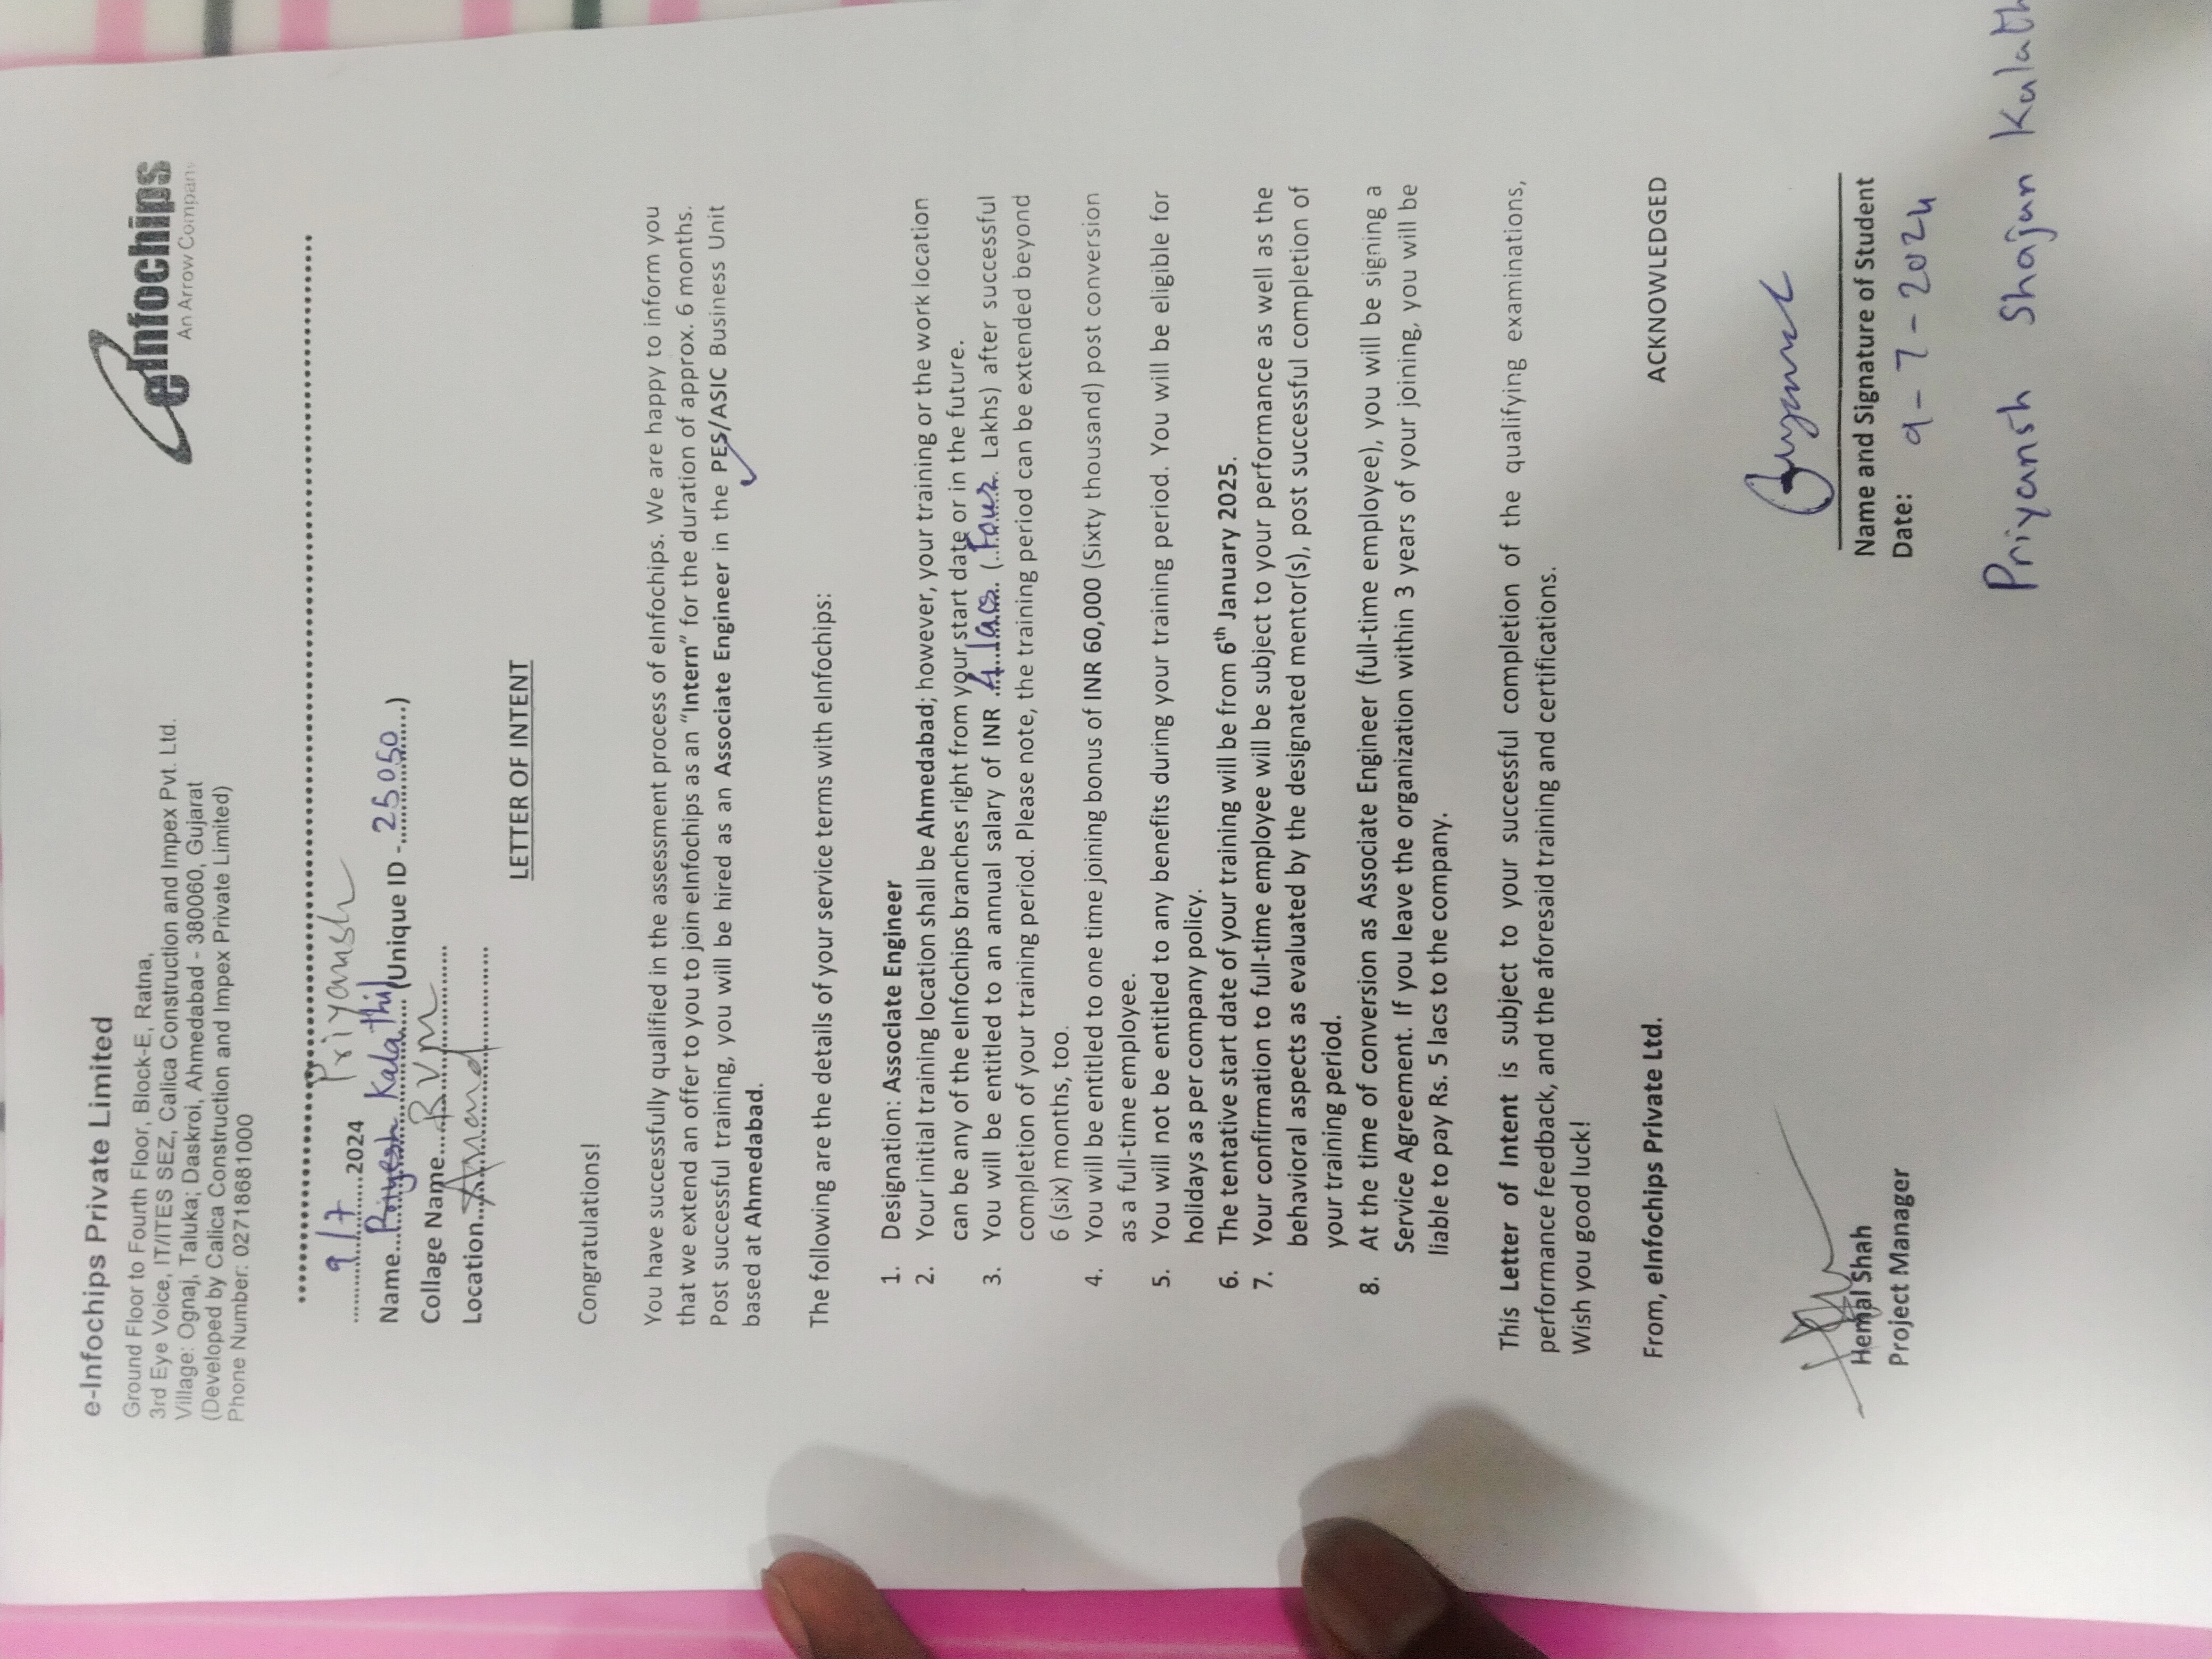 e-Infochips Private Limited
Ground Floor to Fourth Floor, Block-E, Ratna,
3rd Eye Voice, IT/ITES SEZ, Calica Construction and Impex Pvt. Ltd.
Village: Ognaj, Taluka; Daskroi, Ahmedabad - 380060, Gujarat
(Developed by Calica Construction and Impex Private Limited)
Phone Number: 02718681000
eInfochips
An Arrow Company
9/7 2024 Priyansh
Name Priyesh Kalathil (Unique ID - 25050)
Collage Name BVM
Location Anand
LETTER OF INTENT
Congratulations!
You have successfully qualified in the assessment process of eInfochips. We are happy to inform you
that we extend an offer to you to join eInfochips as an “Intern” for the duration of approx. 6 months.
Post successful training, you will be hired as an Associate Engineer in the PES/ASIC Business Unit
based at Ahmedabad.
The following are the details of your service terms with eInfochips:
1. Designation: Associate Engineer
2. Your initial training location shall be Ahmedabad; however, your training or the work location
can be any of the eInfochips branches right from your start date or in the future.
3. You will be entitled to an annual salary of INR 4 lacs (Four Lakhs) after successful
completion of your training period. Please note, the training period can be extended beyond
6 (six) months, too.
4. You will be entitled to one time joining bonus of INR 60,000 (Sixty thousand) post conversion
as a full-time employee.
5. You will not be entitled to any benefits during your training period. You will be eligible for
holidays as per company policy.
6. The tentative start date of your training will be from 6th January 2025.
7. Your confirmation to full-time employee will be subject to your performance as well as the
behavioral aspects as evaluated by the designated mentor(s), post successful completion of
your training period.
8. At the time of conversion as Associate Engineer (full-time employee), you will be signing a
Service Agreement. If you leave the organization within 3 years of your joining, you will be
liable to pay Rs. 5 lacs to the company.
This Letter of Intent is subject to your successful completion of the qualifying examinations,
performance feedback, and the aforesaid training and certifications.
Wish you good luck!
From, eInfochips Private Ltd.
ACKNOWLEDGED
Hemal Shah
Project Manager
Priyansh
Name and Signature of Student
Date: 9-7-2024
Priyansh Shajan Kalath